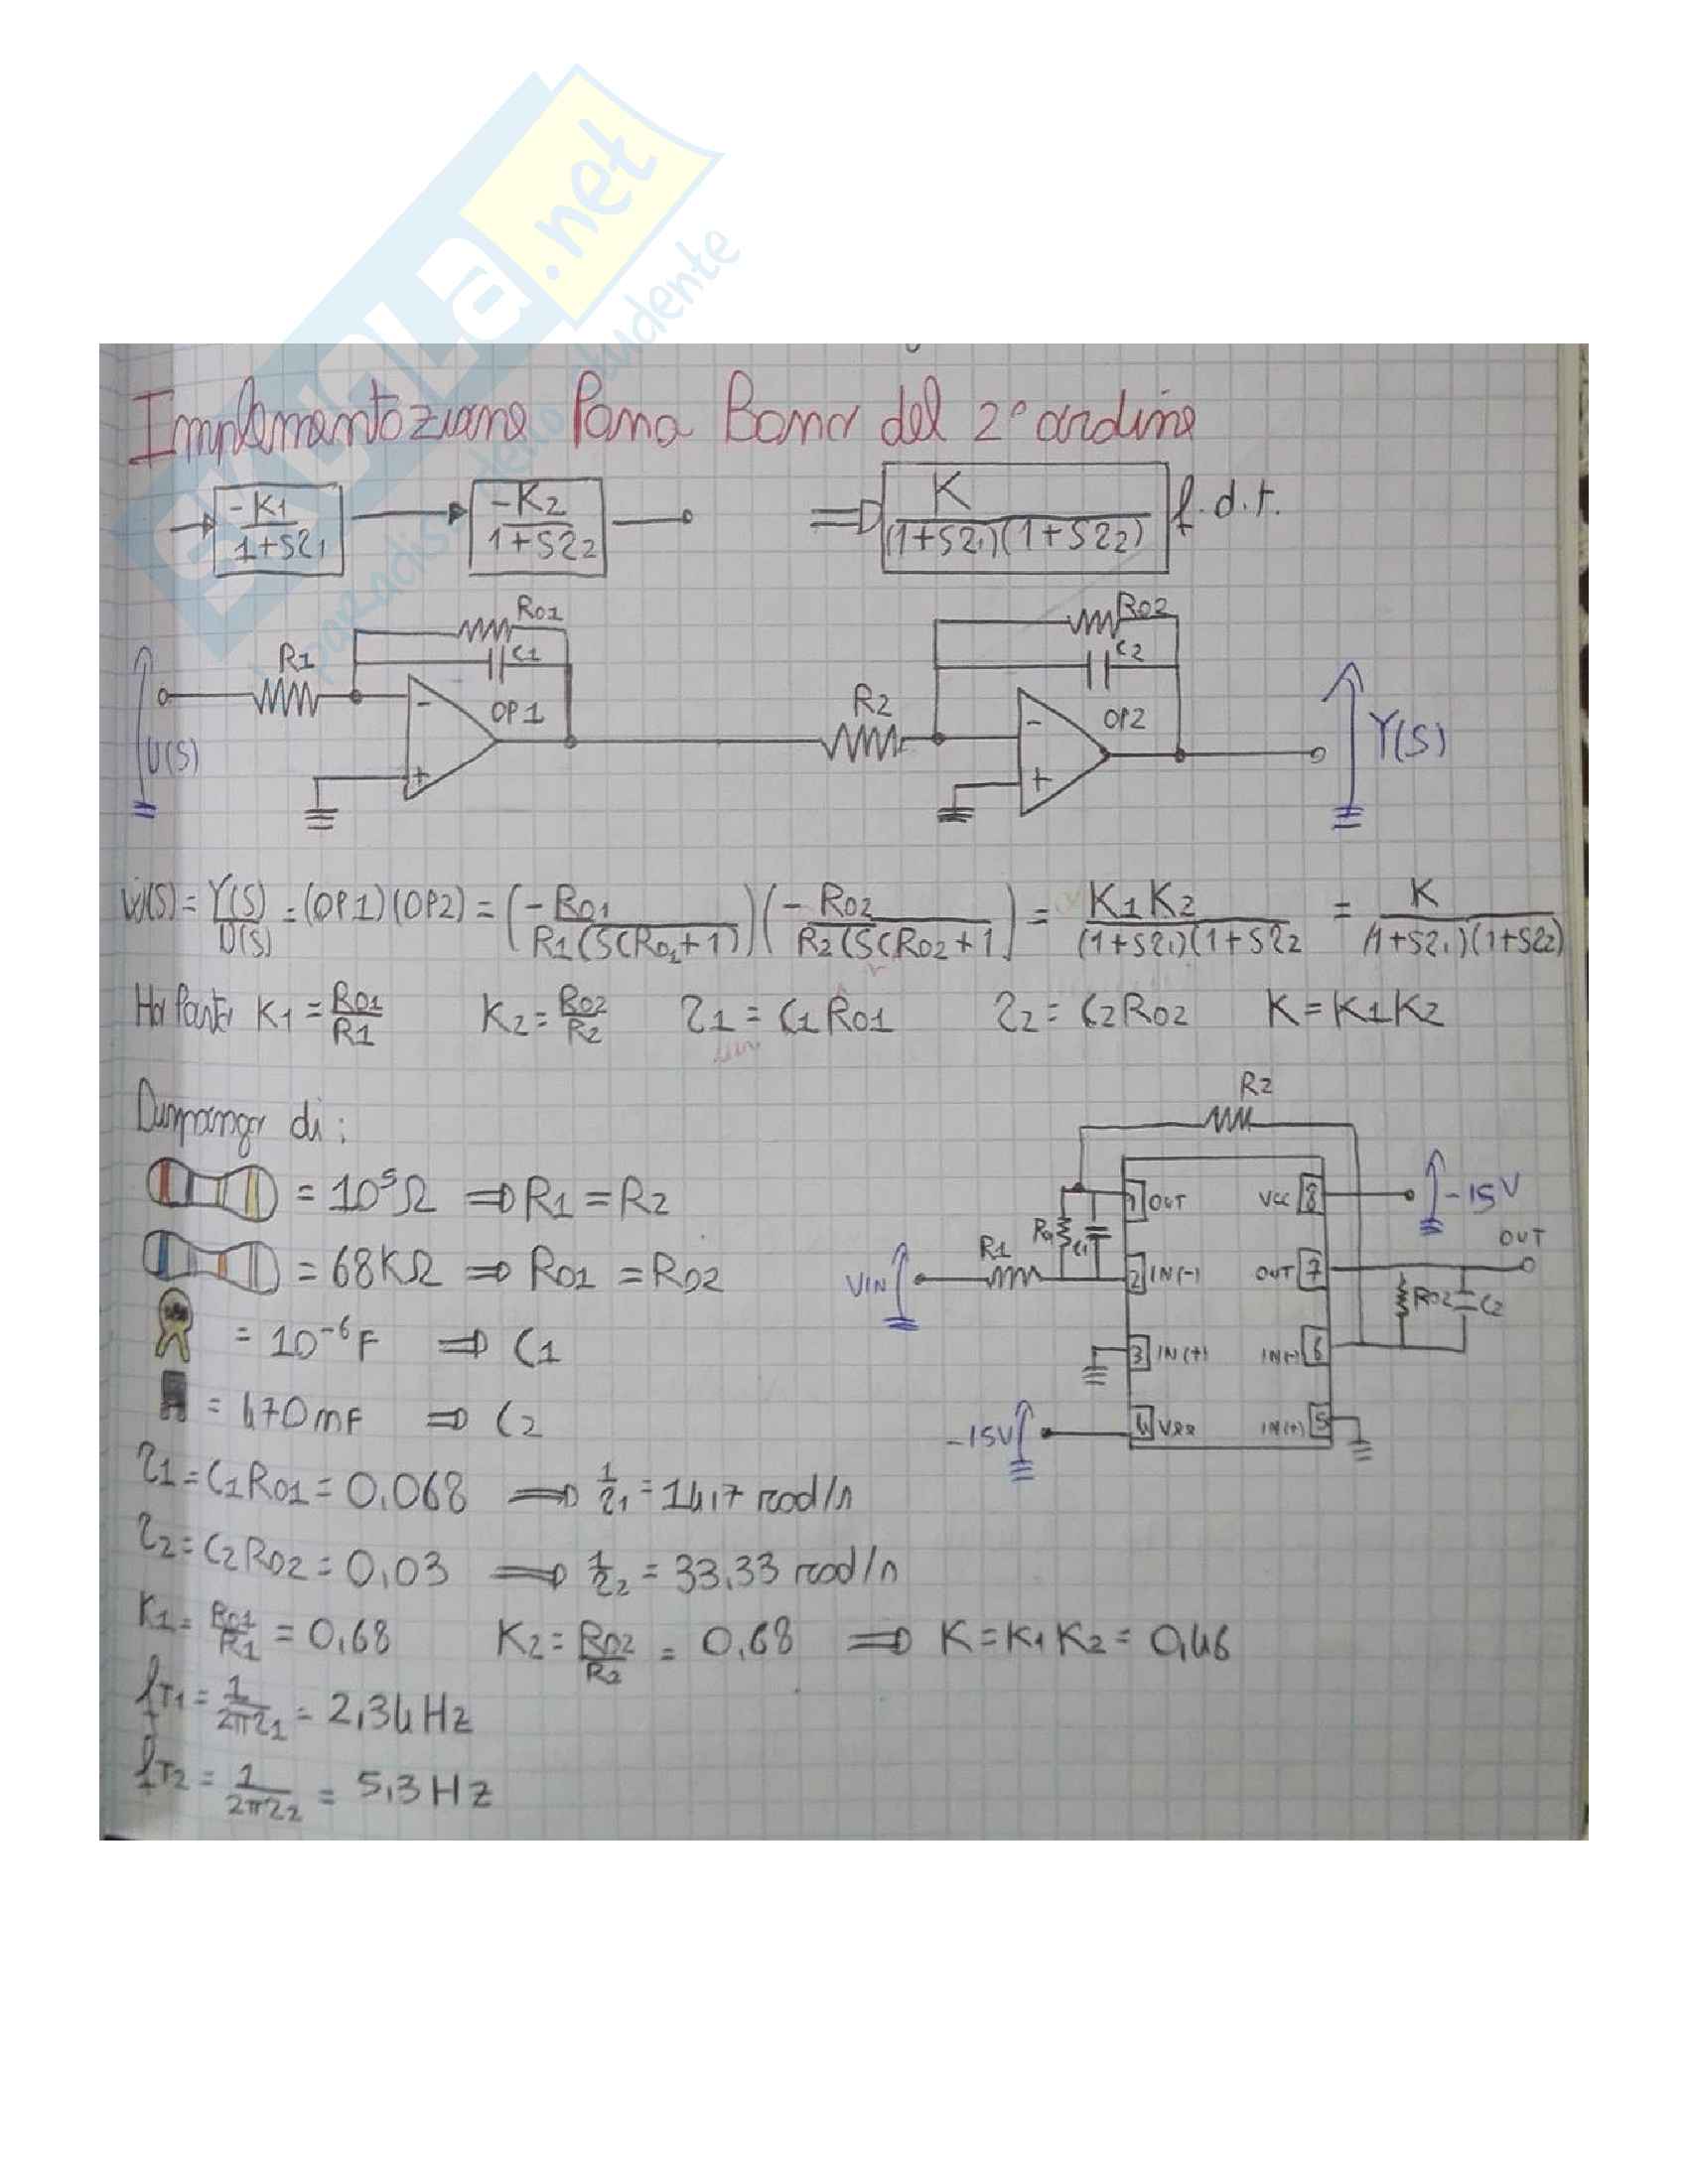 SKUOLA.net
il paradiso dello studente
Implementazione Passa Bassa del 2° ordine
-K1/(1+Sτ1) -K2/(1+Sτ2) ⇒ K/((1+Sτ1)(1+Sτ2)) f.d.t.
R01 R02
R1 C1 C2
OP1 R2 OP2
U(S) - + - + Y(S)
W(S) = Y(S)/U(S) = (OP1)(OP2) = (-R01/(R1(SCR01+1)))(-R02/(R2(SCR02+1)) = K1K2/((1+Sτ1)(1+Sτ2 = K/((1+Sτ1)(1+Sτ2))
Ho Posto K1 = R01/R1 K2 = R02/R2 τ1 = C1R01 τ2 = C2R02 K = K1K2
Dispongo di:
= 10⁵Ω ⇒ R1 = R2
= 68KΩ ⇒ R01 = R02
= 10⁻⁶F ⇒ C1
= 470mF ⇒ C2
τ1 = C1R01 = 0,068 ⇒ 1/τ1 = 14,7 rad/s
τ2 = C2R02 = 0,03 ⇒ 1/τ2 = 33,33 rad/s
K1 = R01/R1 = 0,68 K2 = R02/R2 = 0,68 ⇒ K = K1K2 = 0,46
fT1 = 1/(2πτ1) = 2,34Hz
fT2 = 1/(2πτ2) = 5,3Hz
R2
1 OUT VCC 8 -15V
R1 C1 OUT
VIN 2 IN(-) OUT 7 R02 C2
3 IN(+) IN(-) 6
-15V 4 Vee IN(+) 5